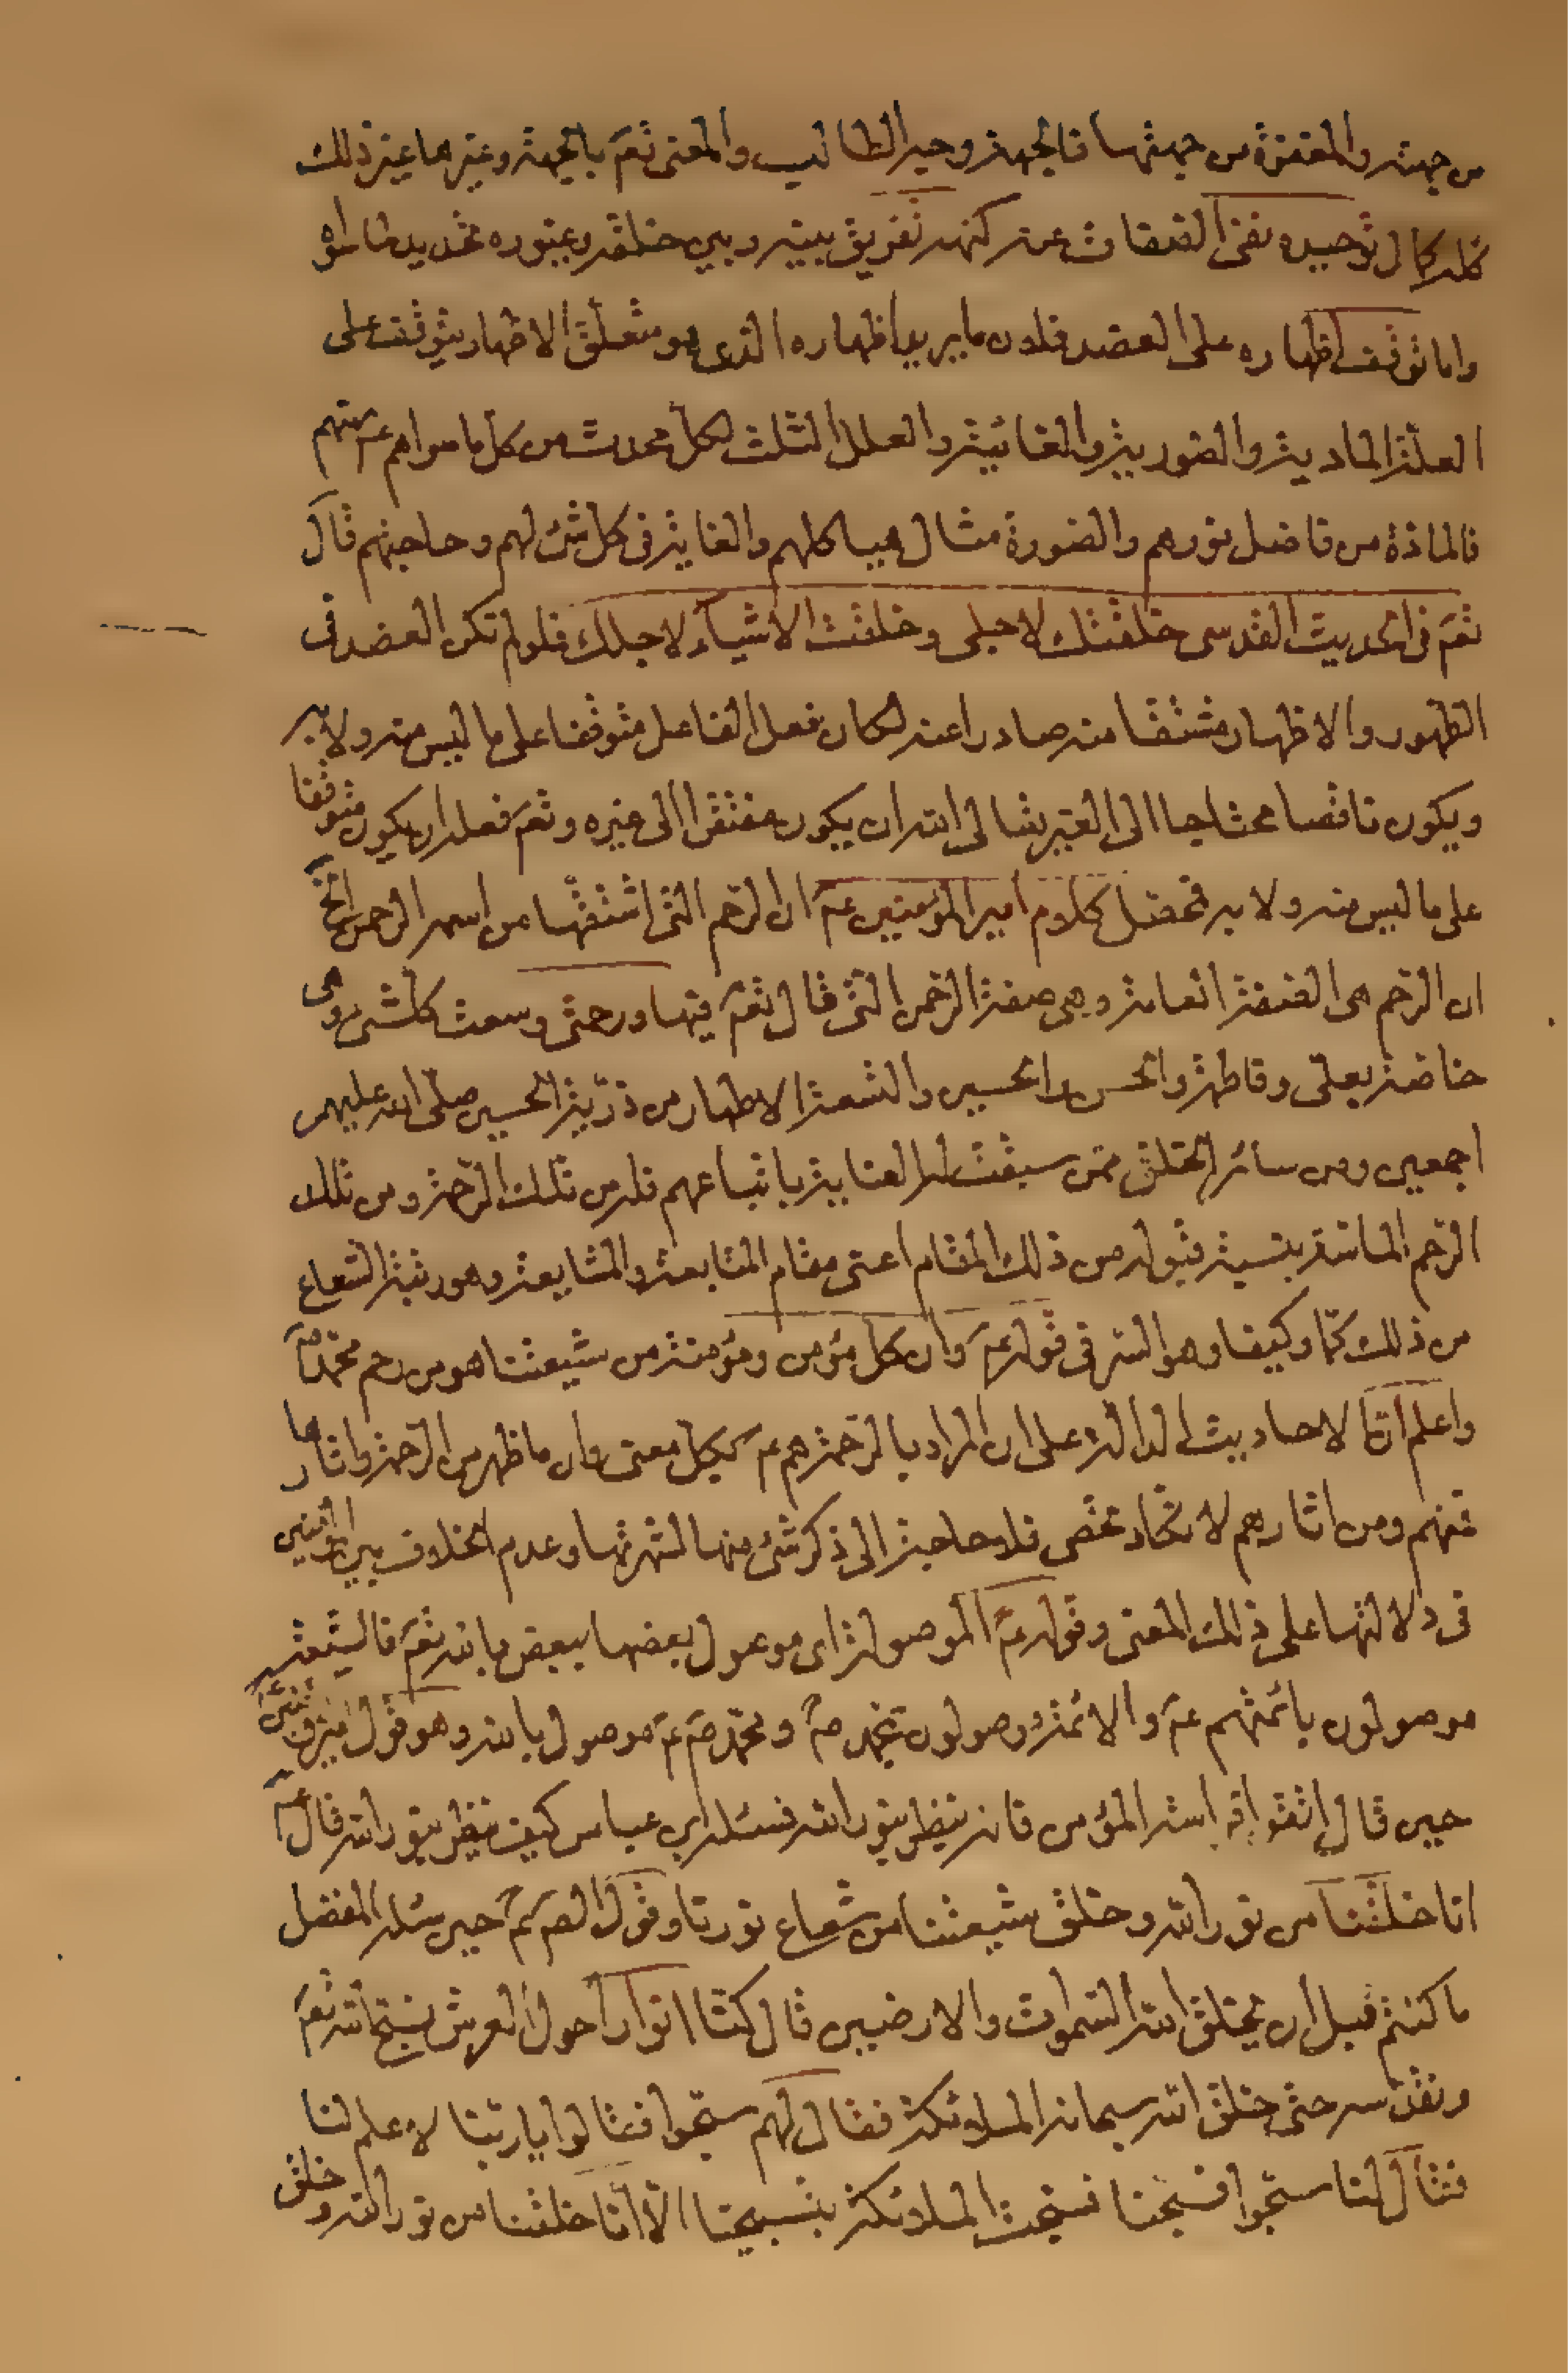 من جهته والمغفرة من جهتها فالجهة وحيز الطالب والمعنى تعم بالجهة وغيرها غير ذلك
كله كمال توحيده نفى الصفات عنه كنهه تفريق بينه وبين خلقه وغيوره تحديد لما سواه
واما توقف اظهاره على العضد فلان ما يريد اظهاره الذى هو متعلق الاظهار يتوقف على
العلة المادية والصورية والغائية والعلل الثلث لكل محدث من كل ما سواهم عنهم
فالمادة من فاضل نورهم والصورة مثال هياكلهم والغاية فى كل شئ لهم وحاجتهم قال
تعم فى الحديث القدسى خلقتك لاجلى وخلقت الاشياء لاجلك فلو لم تكن العضد فى
الظهور والاظهار مشتقا منه صادرا عنه لكان فعل الفاعل متوقفا على ما ليس منه ولا به
ويكون ناقصا محتاجا الى الغير تعالى الله ان يكون مفتقرا الى غيره وتعم فعله ان يكون متوقفا
على ما ليس منه ولا به فتحصل كلام امير المؤمنين عم ان الرحم التى اشتقها من اسمه الرحمن الخ
ان الرحم هى الصفة العامة وهى صفة الرحمن التى قال تعم فيها ورحمتى وسعت كل شئ وهى
خاصة بعلى وفاطمة والحسن والحسين والتسعة الاطهار من ذرية الحسين صلى الله عليهم
اجمعين ومن سائر الخلق ممن سبقت له العناية باتباعهم فله من تلك الرحمة ومن تلك
الرحم الماسة بنسبة قبوله من ذلك المقام اعنى مقام المتابعة والمشايعة وهو رتبة الشعاع
من ذلك كما وكيفا وهو السر فى قوله عم وان كل مؤمن ومؤمنة من شيعتنا هو من رحم محمد ص
واعلم ان الاحاديث الدالة على ان المراد بالرحمة هم عم بكل معنى وان ما ظهر من الرحمة واثارها
فمنهم ومن اثارهم لا تكاد تحصى فلا حاجة الى ذكر شئ منها لشهرتها وعدم الخلاف بين المؤمنين
فى دلالتها على ذلك المعنى وقوله عم الموصولة اى موصول بعضها ببعض بالله تعم فالشيعة
موصولون بائمتهم عم والائمة موصولون بمحمد ص ومحمد ص عم موصول بالله وهو قول
حين قال اتقوا فراسة المؤمن فانه ينظر بنور الله فسئله ابن عباس كيف ينظر بنور الله قال عم
انا خلقنا من نور الله وخلق شيعتنا من شعاع نورنا وقول الصم حين سئله المفضل
ما كنتم قبل ان يخلق الله السموات والارضين قال كنا انوارا حول العرش نسبح الله تعم
ونقدسه حتى خلق الله سبحانه الملائكة فقال لهم سبحوا فقالوا يا ربنا لا علم لنا
فقال لنا سبحوا فسبحنا فسبحت الملائكة بتسبيحنا الا انا خلقنا من نور الله وخلق